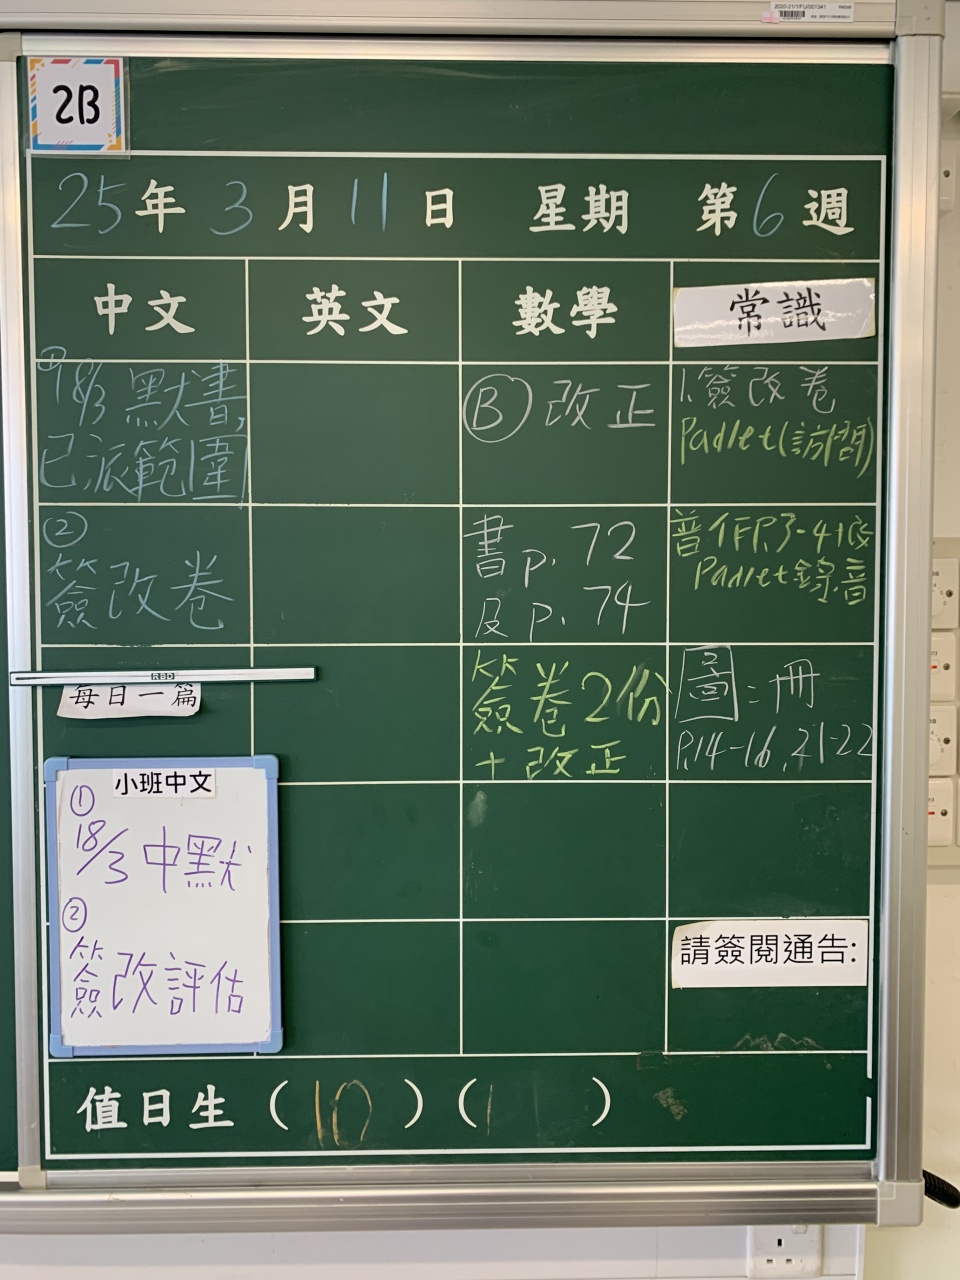 2020-21/1/FU/001341
2B
25年3月11日 星期 第6週
中文 英文 數學 常識
① 18/3 默書,
已派範圍
②
簽改卷
每日一篇
RBD
小班中文
①
18/3 中默
②
簽改評估
Ⓑ 改正
書p. 72
及p. 74
簽卷2份
+改正
1.簽改卷
Padlet(訪問)
普作P.3-4
Padlet錄音
圖=冊
P.14-16, 21-22
請簽閱通告:
值日生 (10) (11)